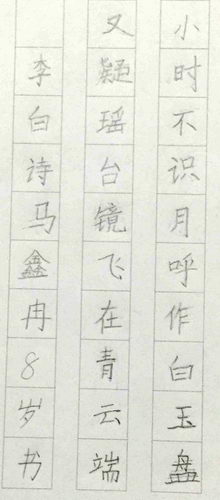 小时不识月呼作白玉盘
又疑瑶台镜飞在青云端
李白诗马鑫冉8岁书